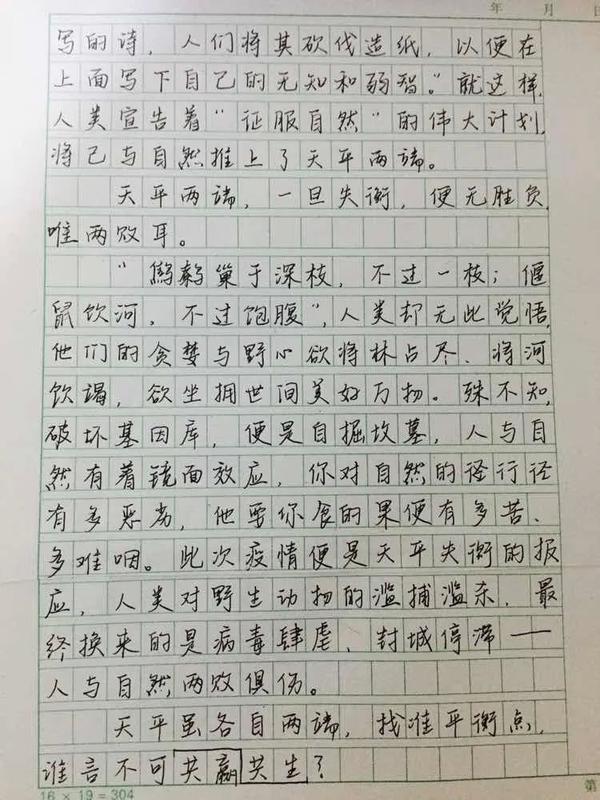 年 月 日
写的诗，人们将其砍伐造纸，以便在
上面写下自己的无知和弱智。”就这样，
人类宣告着“征服自然”的伟大计划，
将己与自然推上了天平两端。
天平两端，一旦失衡，便无胜负，
唯两败耳。
“鹪鹩巢于深枝，不过一枝；偃
鼠饮河，不过饱腹”，人类却无此觉悟，
他们的贪婪与野心欲将林占尽、将河
饮竭，欲坐拥世间美好万物。殊不知，
破坏基因库，便是自掘坟墓，人与自
然有着镜面效应，你对自然的径行径
有多恶劣，他要你食的果便有多苦、
多难咽。此次疫情便是天平失衡的报
应，人类对野生动物的滥捕滥杀，最
终换来的是病毒肆虐，封城停滞——
人与自然两败俱伤。
天平虽各自两端，找准平衡点，
谁言不可共赢共生？
16 × 19 = 304
第